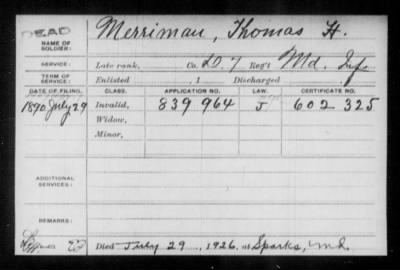 DEAD
NAME OF SOLDIER: Merriman, Thomas H.
SERVICE: Late rank, Co. D. 7 Reg't Md. Inf.
TERM OF SERVICE: Enlisted , 1 Discharged
DATE OF FILING. CLASS. APPLICATION NO. LAW. CERTIFICATE NO.
1890 July 29 Invalid, 839 964 J 602 325
Widow,
Minor,
ADDITIONAL SERVICES:
REMARKS:
Died July 29, 1926, at Sparks, Md.